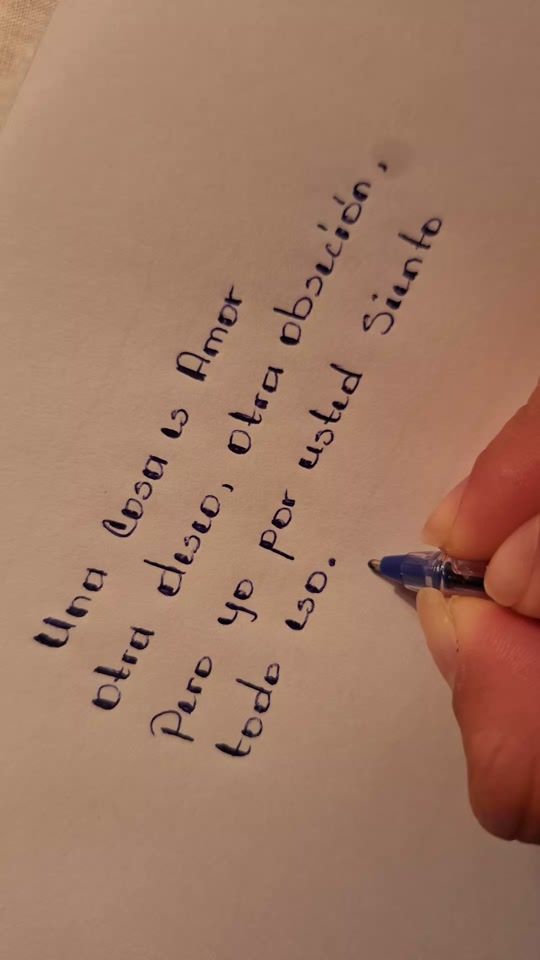 Una Cosa es Amor
otra deseo, otra obseción,
Pero yo por usted Siento
todo eso.